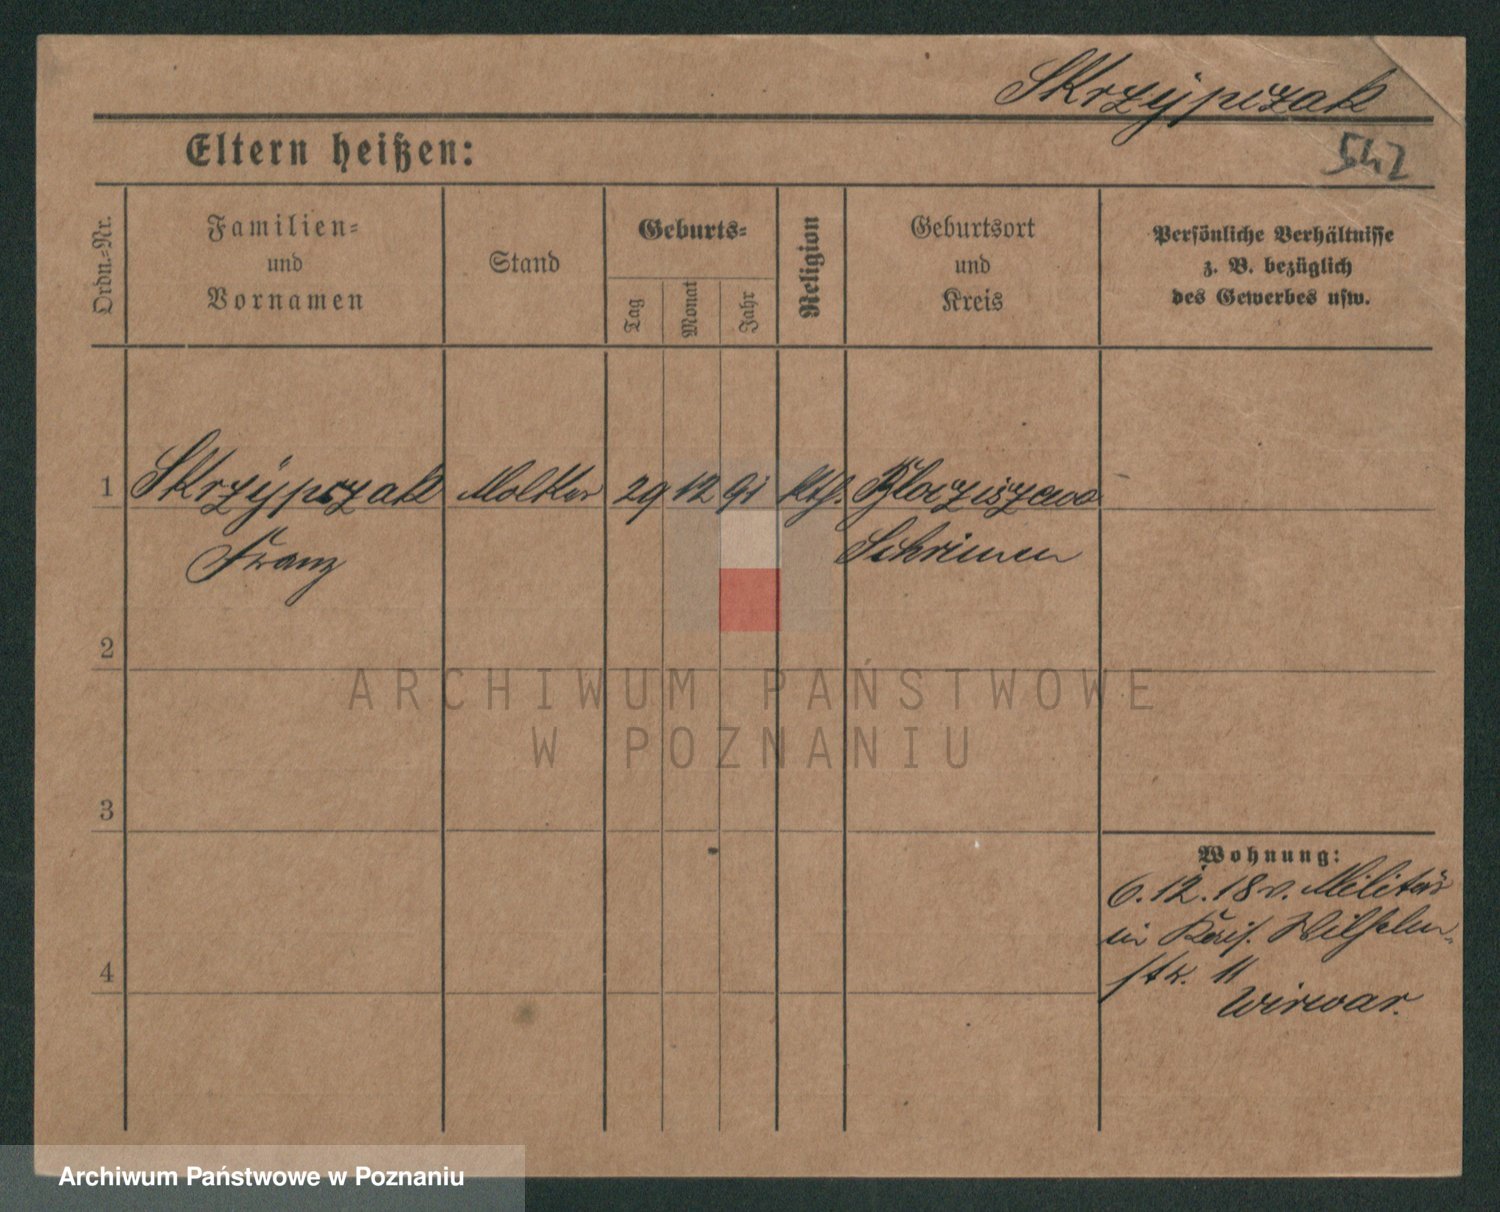 Skrzypczak
Eltern heißen:
542
Ordn.-Nr.
Familien-
und
Vornamen
Stand
Geburts-
Tag
Monat
Jahr
Religion
Geburtsort
und
Kreis
Persönliche Verhältnisse
z. B. bezüglich
des Gewerbes usw.
1 Skrzypczak Molker 29 12 91 kth.
Franz Schrimm
2
ARCHIWUM PAŃSTWOWE
W POZNANIU
3
Wohnung:
6.12.18 v. Militär
in Kais. Wilhelm-
str. 11
Wirwar.
4
Archiwum Państwowe w Poznaniu